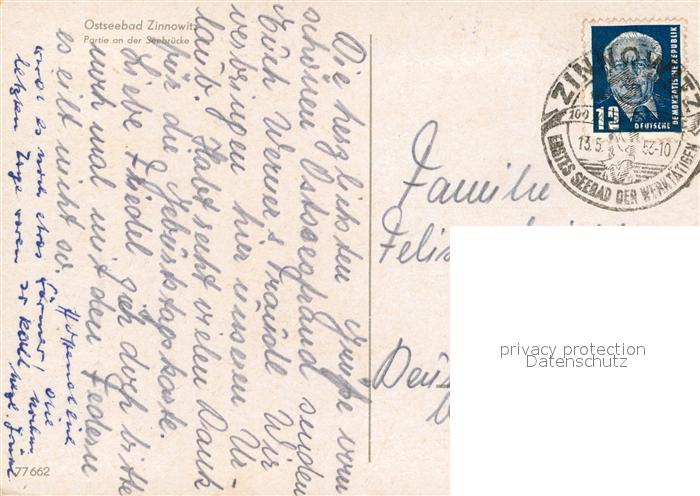 Ostseebad Zinnowitz
Partie an der Seebrücke
Die herzlichsten Grüße vom
schönen Ostseestrand senden
Euch Werner & Traudl. Wir
verbringen hier unseren Ur-
laub. Habt recht vielen Dank
für die Geburtstagskarte.
Liebe Friedel sieh doch bitte
noch mal mit den Federn
es eilt nicht so.
Hoffentlich
wird es noch etwas wärmer! Die
letzten Tage waren so kalt
77662
ZINNOWITZ
13.5. 53-10
ERSTES SEEBAD DER WERKTÄTIGEN
DEUTSCHE
DEMOKRATISCHE REPUBLIK
12
Familie
Felix
privacy protection
Datenschutz